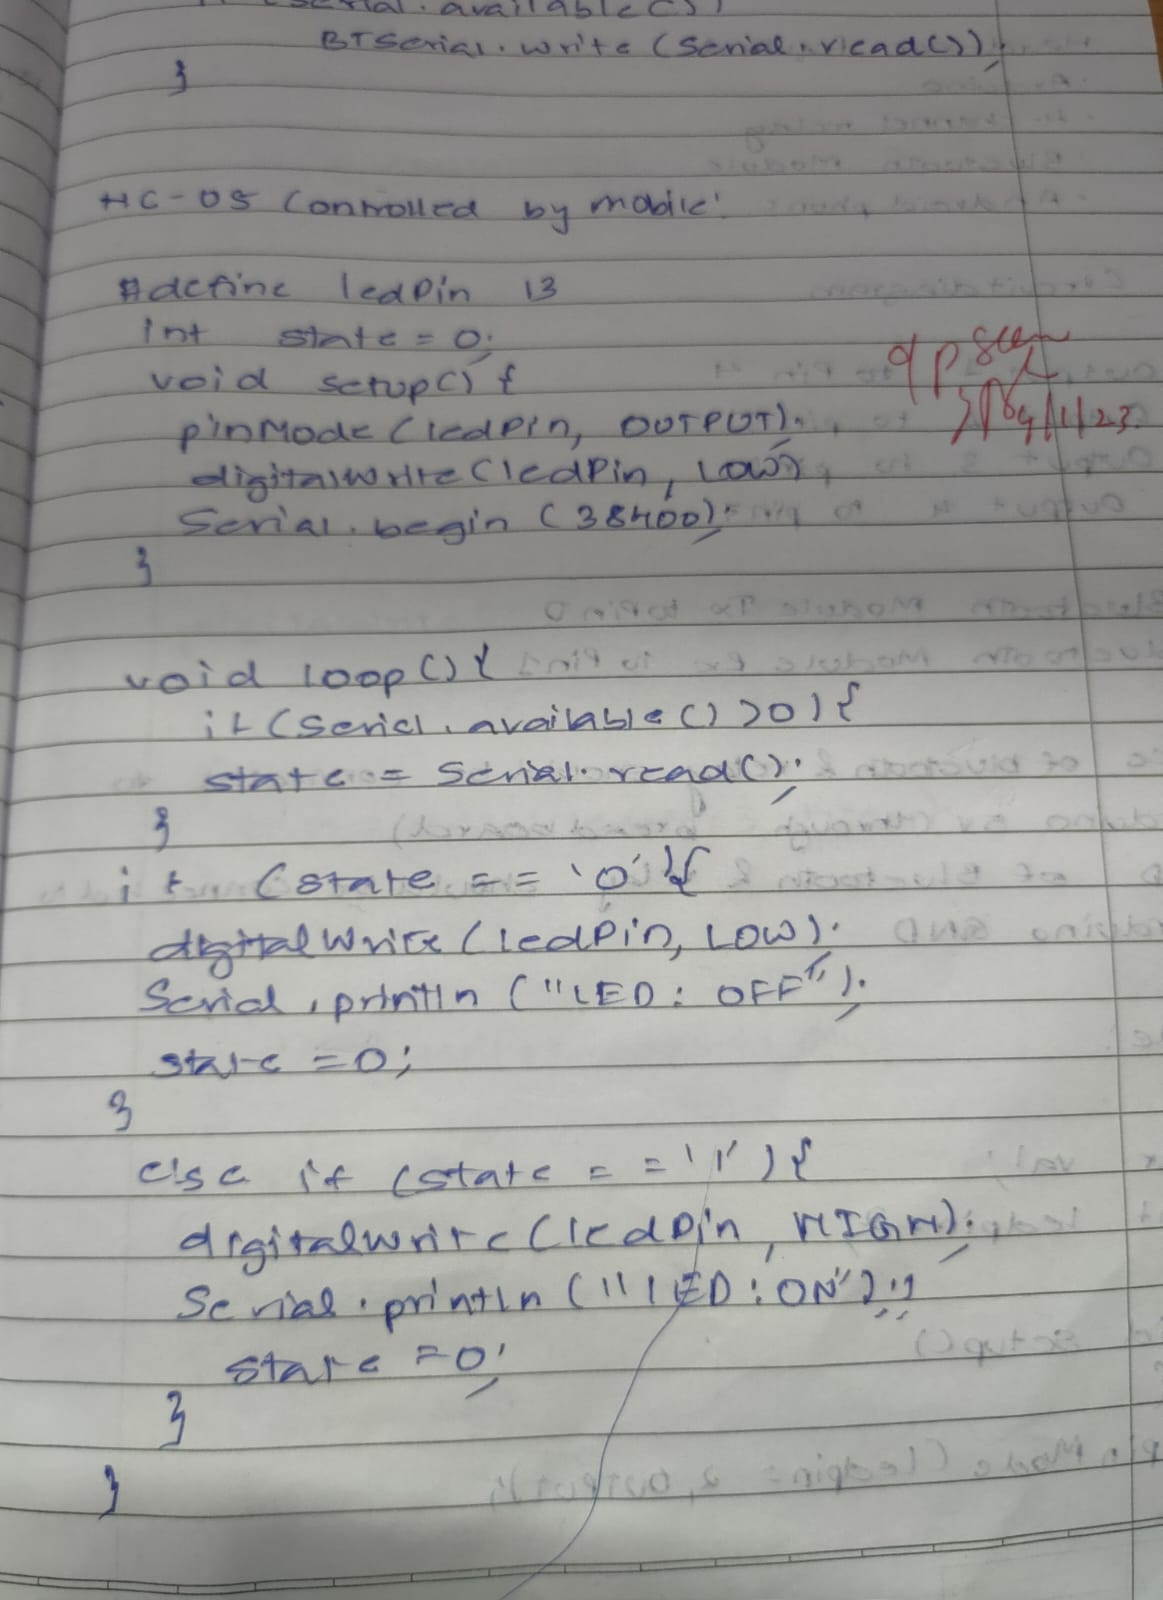 (Serial.available())
BTSerial.write (Serial.read());
}
HC-05 Controlled by mobile:
#define ledPin 13
int state = 0;
void setup() {
pinMode (ledPin, OUTPUT);
digitalWrite (ledPin, LOW);
Serial.begin (38400);
}
void loop() {
if (Serial.available() > 0) {
state = Serial.read();
}
if (state == '0') {
digitalWrite (ledPin, LOW);
Serial.println ("LED: OFF");
state = 0;
}
else if (state == '1') {
digitalWrite (ledPin, HIGH);
Serial.println ("LED: ON");
state = 0;
}
}